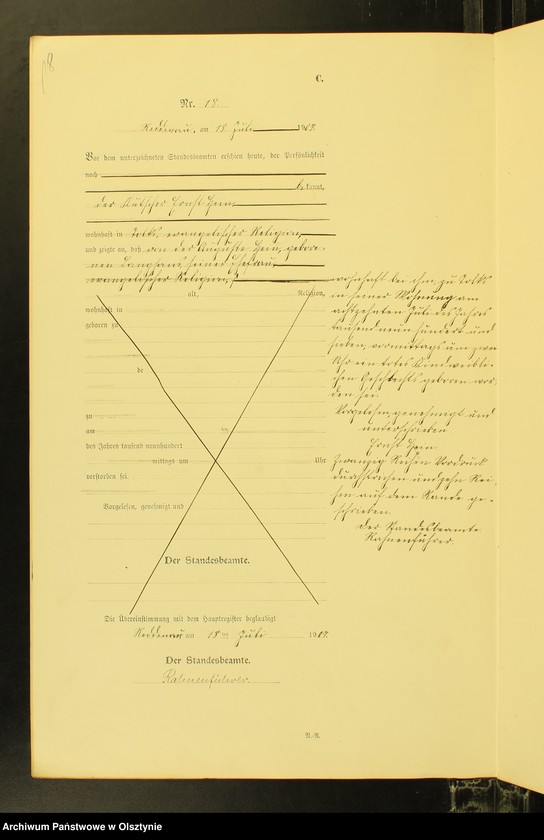 18
C.
Nr. 18.
Reddenau, am 18 Juli 1907.
Vor dem unterzeichneten Standesbeamten erschien heute, der Persönlichkeit
nach
be kannt,
der Kutscher Ernst Hein,
wohnhaft in Tolks, evangelischer Religion,
und zeigte an, daß von der Auguste Hein, gebore-
nen Langhans, seiner Ehefrau,
evangelischer Religion,
alt, Religion,
wohnhaft in
geboren zu
de
zu
am
des Jahres tausend neunhundert
mittags um Uhr
verstorben sei.
Vorgelesen, genehmigt und
Der Standesbeamte.
wohnhaft bei ihm, zu Tolks
in seiner Wohnung am
achtzehnten Juli des Jahres
tausend neun hundert und
sieben, vormittags um zwei
Uhr ein totes Kind weibli-
chen Geschlechts geboren wor-
den sei.
Vorgelesen, genehmigt und
unterschrieben
Ernst Hein
Zwanzig Reihen Vordruck
durchstrichen und zehn Rei-
hen auf dem Rande ge-
schrieben.
Der Standesbeamte
Rahnenführer.
Die Übereinstimmung mit dem Hauptregister beglaubigt
Reddenau am 18ten Juli 1907.
Der Standesbeamte.
Rahnenführer.
Archiwum Państwowe w Olsztynie